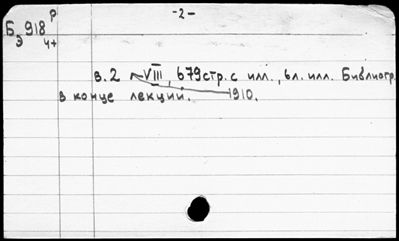 -2-
Б 918 Р
Э 4+
в.2 VIII, 679стр. с илл., 6л. илл. Библиогр.
в конце лекции. 1910.